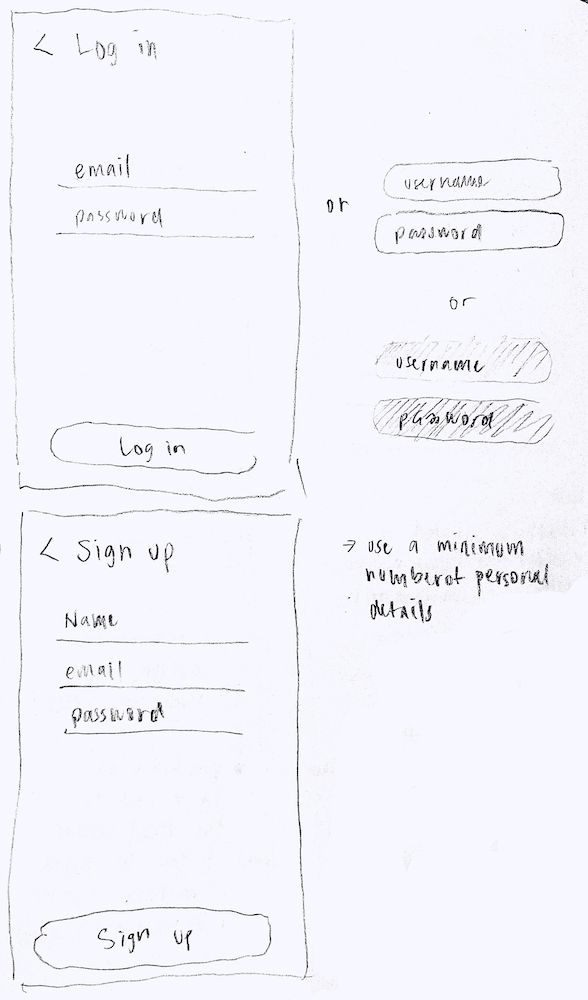 < Log in
email
password
Log in
or
username
password
or
username
password
< Sign up
Name
email
password
Sign up
→ use a minimum
number of personal
details